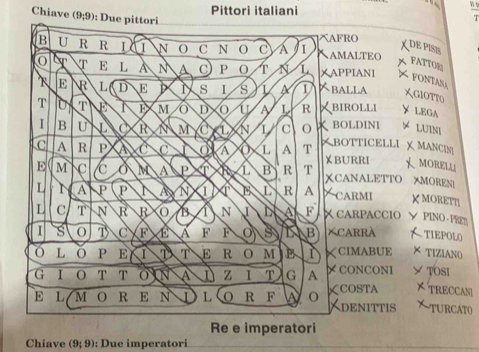 Chiave (9;9): Due pittori
Pittori italiani
B U R R I I N O C N O C A I
O T T E L A N A C P O T N L
T E R L D E P I S I S L A I
T U T E T E M O D O U A L R
B U L C R N M C L N L C O
C A R P A C C I O A O L A T
E M C C O M A P T R L B R T
L I A P P I A N I T E L R A
L C T N R R O B I N I L A F
I S O T C F E A F F O S L B
O L O P E I T T E R O M E I
G I O T T O N A I Z I T G A
E L M O R E N I L O R F A O
AFRO
AMALTEO
APPIANI
BALLA
BIROLLI
BOLDINI
BOTTICELLI
BURRI
CANALETTO
CARMI
CARPACCIO
CARRÀ
CIMABUE
CONCONI
COSTA
DENITTIS
DE PISIS
FATTORI
FONTANA
GIOTTO
LEGA
LUINI
MANCINI
MORELLI
MORENI
MORETTI
PINO-PRETI
TIEPOLO
TIZIANO
TOSI
TRECCANI
TURCATO
Re e imperatori
Chiave (9; 9): Due imperatori